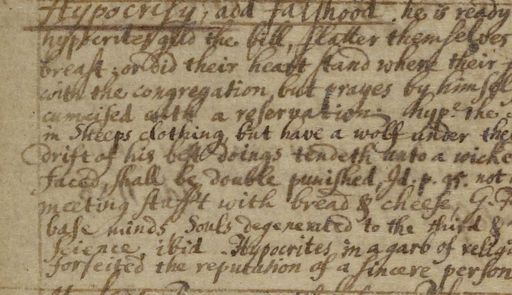 Hypocrisy, add falshood. he is ready
hypocrites gild the bill, flatter themselves
breast; or did their heart stand where their
with the congregation, but prayes by himself
cumcised with a reservation. hype. the.
in Sheeps clothing, but have a wolf under the
drift of his best doings tendeth unto a wicke
faced, shall be double punished, Id. p. 95. not
meeting stufft with bread & cheese, G.
base minds. Souls degenerated to the third &
science, ibid. Hypocrites in a garb of relig
forfeited the reputation of a sincere person